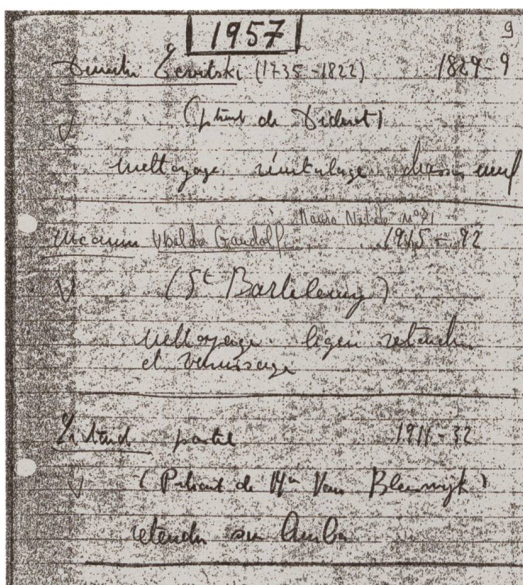 1957
9
Dimitri Levitski (1735-1822) 1829-9
(ptrait de Diderot)
nettoyage rentoilage chassis neuf
Maura Natale n°81
Inconnu Ubaldo Gandolfi 1945-92
(St Barthelemy)
nettoyage léger
et vernissage
Liotard pastel 1911-32
(Portrait de Van Bleiswijk)
étendu sur